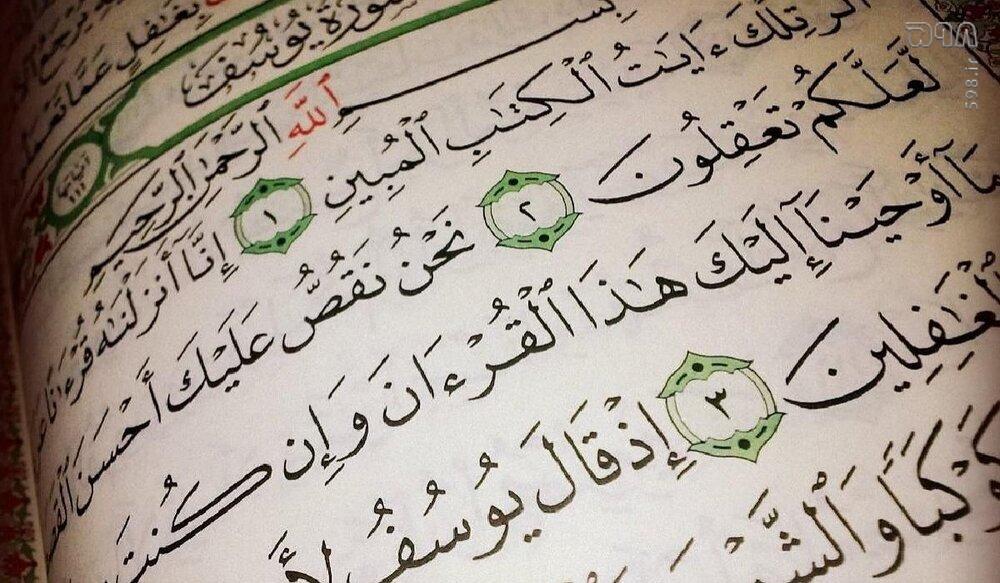 بِغَٰفِلٍ عَمَّا تَعۡمَلُونَ
سورة يوسف
بِسۡمِ ٱللَّهِ ٱلرَّحۡمَٰنِ ٱلرَّحِيمِ
الٓر تِلۡكَ ءَايَٰتُ ٱلۡكِتَٰبِ ٱلۡمُبِينِ ١ إِنَّآ أَنزَلۡنَٰهُ قُرۡءَٰنًا
لَّعَلَّكُمۡ تَعۡقِلُونَ ٢ نَحۡنُ نَقُصُّ عَلَيۡكَ أَحۡسَنَ ٱلۡقَصَصِ
بِمَآ أَوۡحَيۡنَآ إِلَيۡكَ هَٰذَا ٱلۡقُرۡءَانَ وَإِن كُنتَ
ٱلۡغَٰفِلِينَ ٣ إِذۡ قَالَ يُوسُفُ لِأَ
كَوۡكَبًا وَٱلشَّمۡسَ
۵۹۸
598.ir